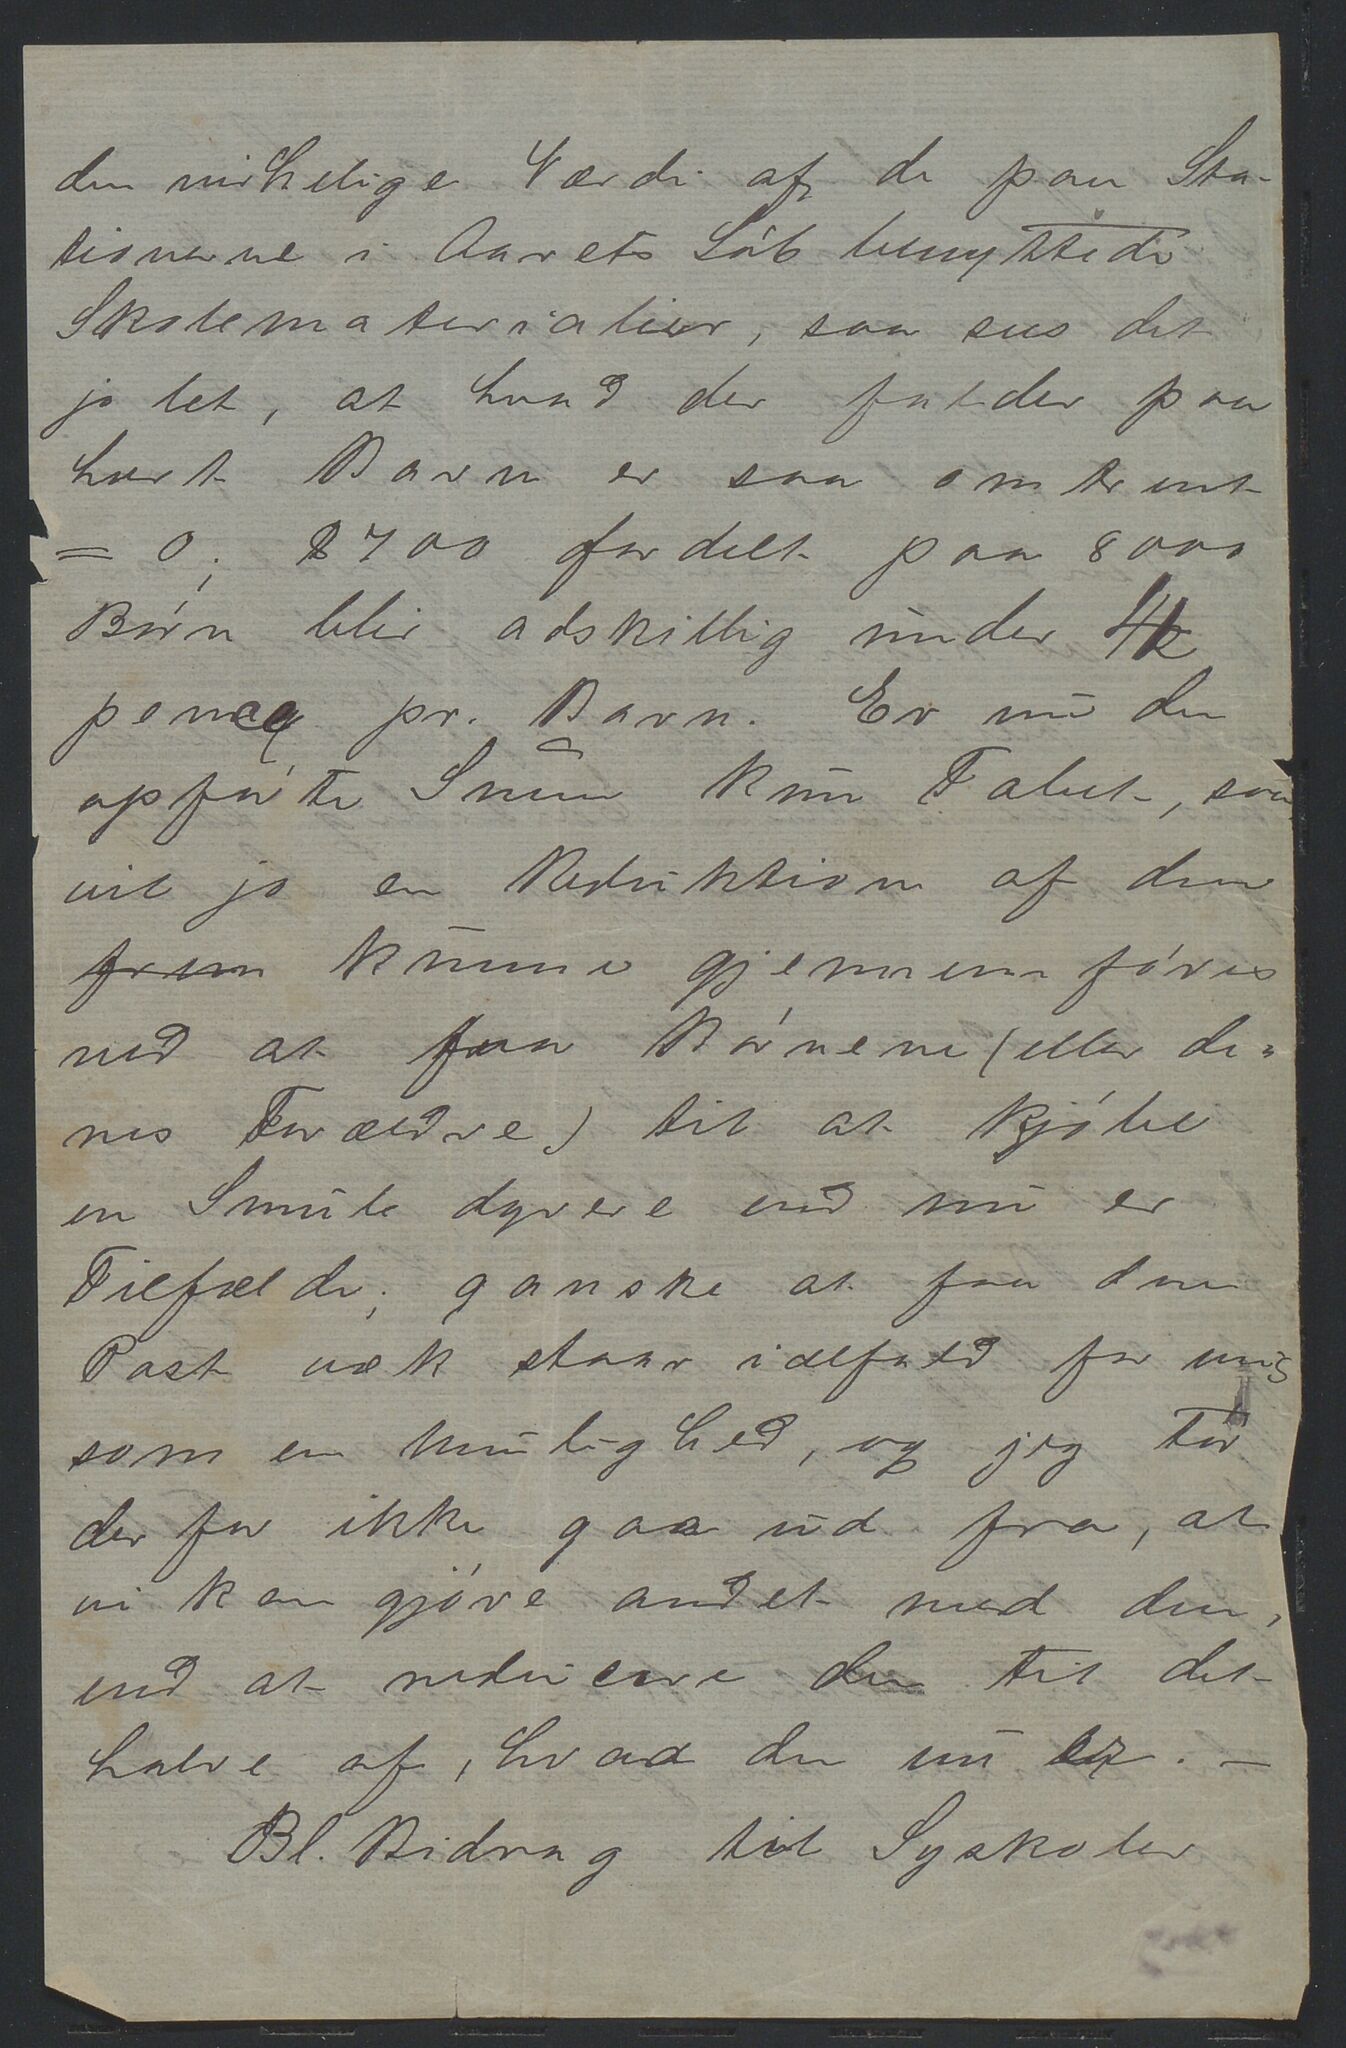 den virkelige Værdi af de paa Sta-
tionerne i Aarets Løb benyttede
Skolematerialier, saa sees det
jo let, at hvad der falder paa
hvert Barn er saa omtrent
= 0; 8700 fordelt paa 8000
Børn blir adskillig under
penny pr. Barn. Er nu den
opførte Sum kun Tabet, saa
vil jo en Reduktion af den
frem kunne gjennemføres
ved at faa Børnene (eller de-
res Forældre) til at kjøbe
en Smule dyrere end nu er
Tilfælde; ganske at faa den
Post væk staar ialfald for mig
som en Umulighed, og jeg tør
derfor ikke gaa ud fra, at
vi kan gjøre andet med den,
end at reducere den til det
halve af, hvad den nu er. —
Bl. Bidrag til Syskoler